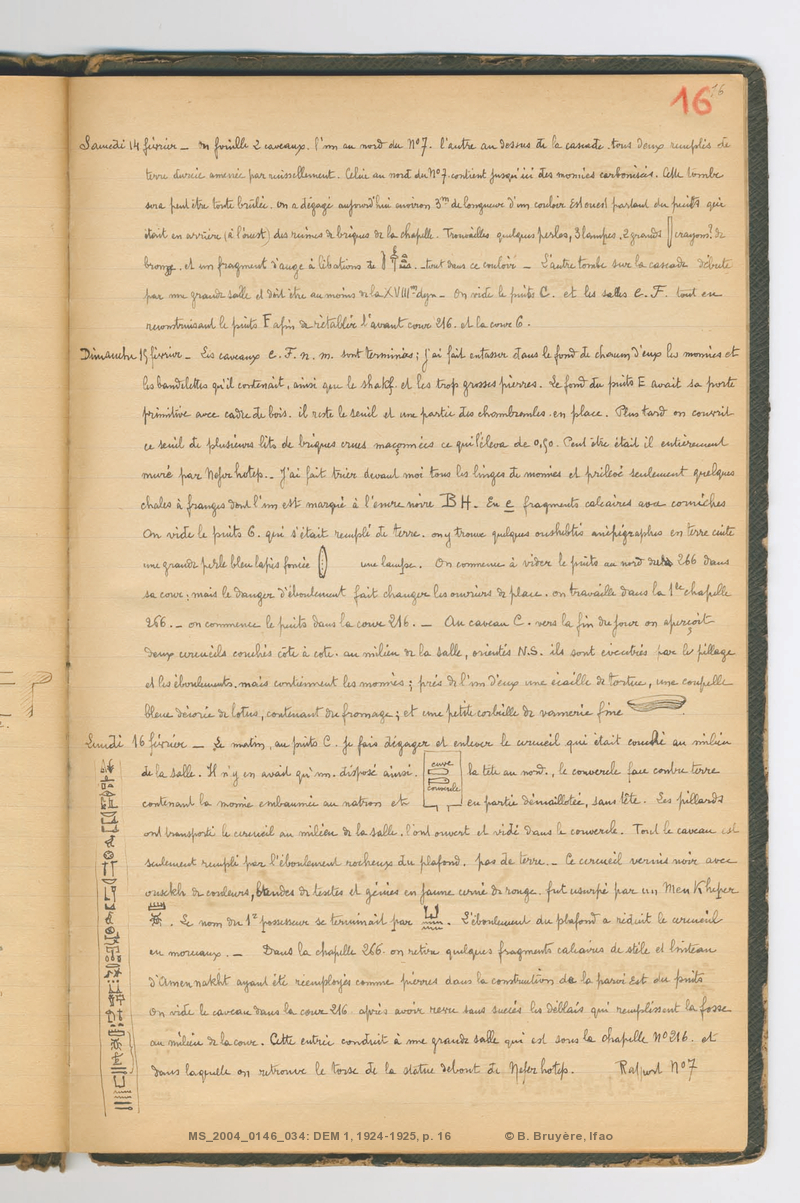 16
16
Samedi 14 février _ on fouille 2 caveaux. l'un au nord du N°7. l'autre au dessus de la cascade. tous deux remplis de
terre durcie amenée par ruissellement. Celui au nord du N°7. contient jusqu'ici des momies carbonisées. Cette tombe
sera peut être toute brûlée. on a dégagé aujourd'hui environ 3m de longueur d'un couloir Est ouest partant du puits qui
était en arrière (à l'ouest) des ruines de briques de la chapelle. Trouvailles quelques perles, 3 lampes, 2 grands crayons? de
bronze. et un fragment d'auge à libations de . _ tout dans ce couloir _ L'autre tombe sur la cascade débute
par une grande salle et doit être au moins de la XVIIIme dyn _ On vide le puits C. et les salles E. F. tout en
reconstruisant le puits F afin de rétablir l'avant cour 216. et la cour 6.
Dimanche 15 février _ Les caveaux E. F. n. m. sont terminés ; j'ai fait entasser dans le fond de chacun d'eux les momies et
les bandelettes qu'il contenait, ainsi que le shakf. et les trop grosses pierres. Le fond du puits E avait sa porte
primitive avec cadre de bois. il reste le seuil et une partie des chambranles en place. Plus tard on couvrit
ce seuil de plusieurs lits de briques crues maçonnées ce qui l'éleva de 0,50. Peut être était il entièrement
muré par Neferhotep. _ J'ai fait trier devant moi tous les linges de momies et prélevé seulement quelques
châles à franges dont l'un est marqué à l'encre noire BH. En e fragments calcaires avec corniches
On vide le puits 6. qui s'était rempli de terre. on y trouve quelques oushebtis anépigraphes en terre cuite
une grande perle bleu lapis foncée une lampe. On commence à vider le puits au nord du 266 dans
sa cour ; mais le danger d'éboulement fait changer les ouvriers de place. on travaille dans la 1re chapelle
266. _ on commence le puits dans la cour 216. _ Au caveau C. vers la fin du jour on aperçoit
deux cercueils couchés côte à côte. au milieu de la salle, orientés N.S. ils sont éventrés par le pillage
et les éboulements. mais contiennent les momies ; près de l'un d'eux une écaille de tortue, une coupelle
bleue décorée de lotus, contenant du fromage ; et une petite corbeille de vannerie fine
Lundi 16 février _ Le matin, au puits C. Je fais dégager et enlever le cercueil qui était couché au milieu
de la salle. Il n'y en avait qu'un. disposé ainsi. cuve couvercle la tête au nord., le couvercle face contre terre
contenant la momie embaumée au natron et en partie démaillotée, sans tête. Les pillards
ont transporté le cercueil au milieu de la salle. l'ont ouvert et vidé dans le couvercle. Tout le caveau est
seulement rempli par l'éboulement rocheux du plafond. pas de terre. _ Ce cercueil vernis noir avec
ousekh de couleurs, bandes de textes et génies en jaune cerné de rouge. fut usurpé par un Men Kheper
. Le nom du 1r possesseur se terminait par . L'éboulement du plafond a réduit le cercueil
en morceaux. _ Dans la chapelle 266. on retire quelques fragments calcaires de stèle et linteau
d'Amennakht ayant été réemployés comme pierres dans la construction de la paroi Est du puits
On vide le caveau dans la cour 216 après avoir revu sans succès les déblais qui remplissent la fosse
au milieu de la cour. Cette entrée conduit à une grande salle qui est sous la chapelle N°216. et
dans laquelle on retrouve le torse de la statue debout de Neferhotep. Rapport N°7
MS_2004_0146_034: DEM 1, 1924-1925, p. 16 © B. Bruyère, Ifao